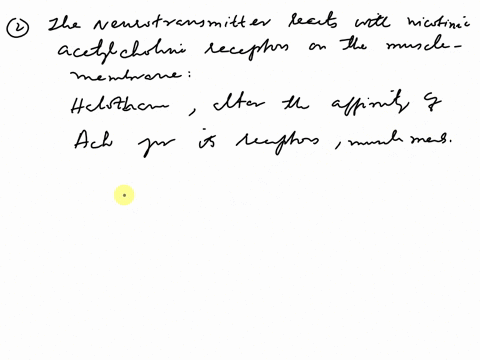 ② The neurotransmitter reacts with nicotinic
acetylcholine receptors on the muscle-
membrane:
Halothane, alter the affinity of
Ach for its receptors, muscle